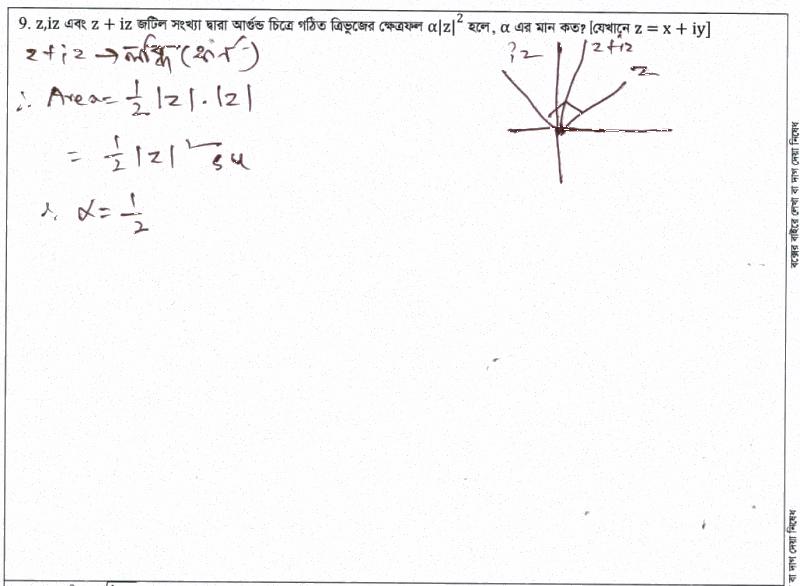 9. z,iz এবং z + iz জটিল সংখ্যা দ্বারা আর্গন্ড চিত্রে গঠিত ত্রিভুজের ক্ষেত্রফল α|z|² হলে, α এর মান কত? [যেখানে z = x + iy]
z + iz → লব্ধি (কর্ণ)
∴ Area = 1/2 |z| . |z|
= 1/2 |z|²
∴ α = 1/2
iz
z+iz
z
বক্সের বাইরে লেখা বা দাগ দেয়া নিষেধ
বা দাগ দেয়া নিষেধ